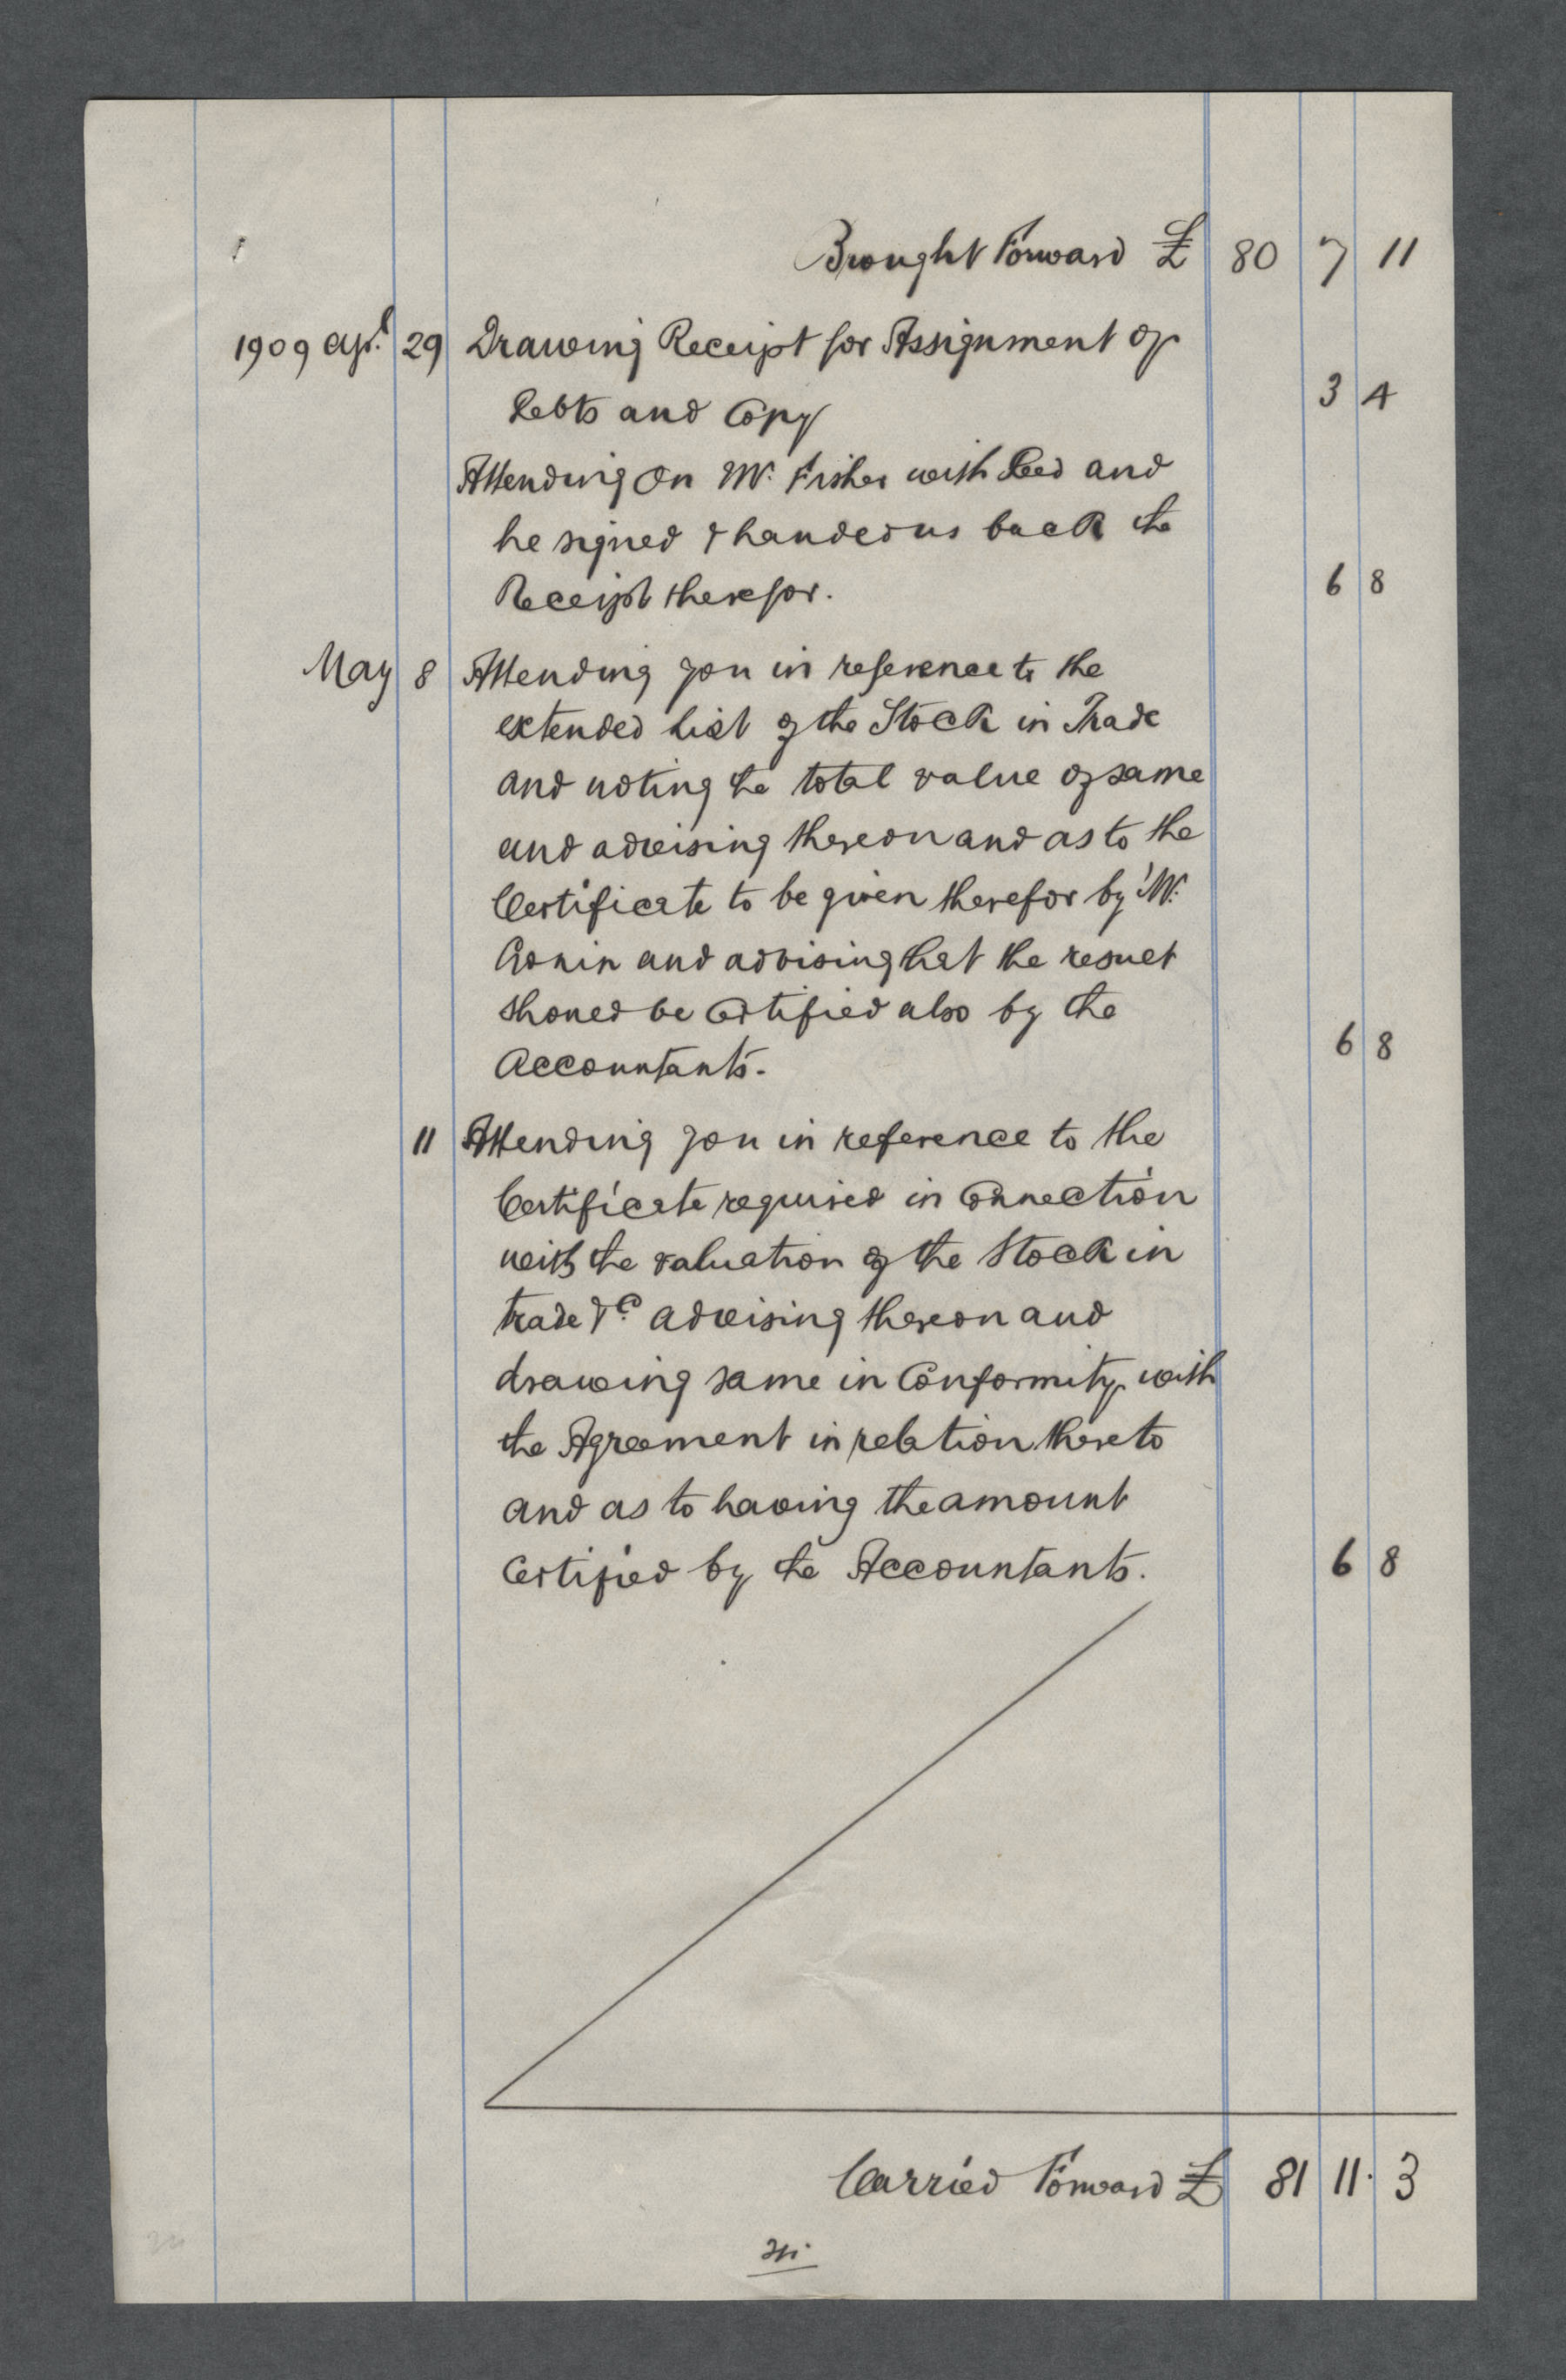 Brought Forward £ 80 7 11
1909 Apl. 29 Drawing Receipt for Assignment of
Debts and Copy 3 4
Attending on Mr. Fisher with Deed and
he signed & handed us back the
Receipt therefor. 6 8
May 8 Attending you in reference to the
extended list of the Stock in Trade
and noting the total value of same
and advising thereon and as to the
Certificate to be given therefor by Mr.
and advising that the result
should be certified also by the
Accountants. 6 8
11 Attending you in reference to the
Certificate required in Connection
with the valuation of the Stock in
trade &c advising thereon and
drawing same in Conformity with
the Agreement in relation thereto
and as to having the amount
Certified by the Accountants. 6 8
Carried Forward £ 81 11. 3